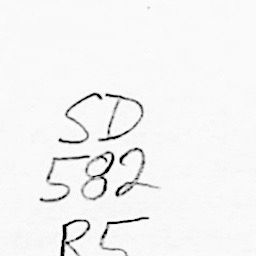 SD
582
R5